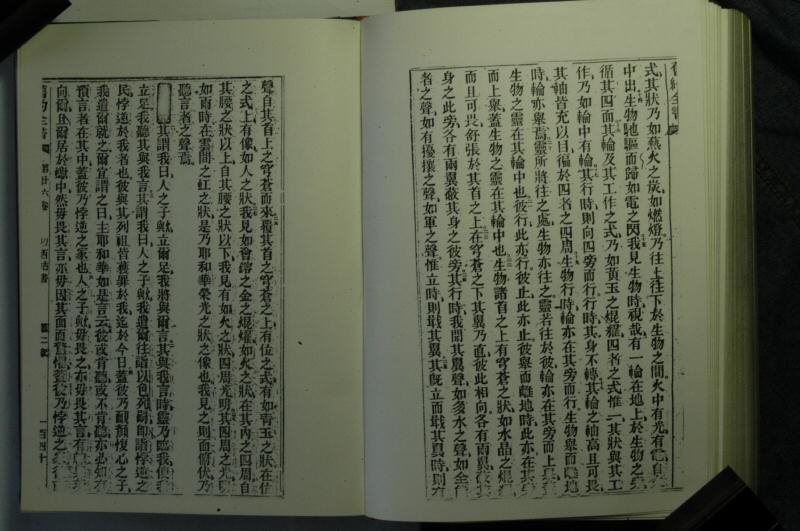 舊約全書
式其狀乃如爇火之炭如燃燈乃往上往下於生物之間火中有光有電自
中出生物馳驅而歸如電之閃我見生物時視哉有一輪在地上於生物之
循其四面其輪及其工作之式乃如黃玉之焜燿四者之式惟一其狀與其工
作乃如輪中有輪其行時則向四旁而行行時其身不轉其輪之軸高且可畏
其軸皆充以目徧於四者之四周生物行時輪亦在其旁而行生物舉而離地
時輪亦舉焉靈所將往之處生物亦往之靈若往於彼輪亦在其旁而上
生物之靈在其輪中也彼行此亦行彼止此亦止彼舉而離地時此亦在其
而上舉蓋生物之靈在其輪中也生物諸首之上有穹蒼之狀如水晶之焜
而且可畏舒張於其首之上在穹蒼之下其翼乃直彼此相向各有兩翼
身之此旁各有兩翼蔽其身之彼旁其行時我聞其翼聲如多水之聲如全
者之聲如有擾攘之聲如軍之聲惟立時則戢其翼其旣立而戢其翼時則
聲自其首上之穹蒼而來覆其首之穹蒼之上有位之式有如青玉之狀在位
之式上有像如人之狀我見如鎔之金之焜燿如火之狀在其內之四周自
其腰之狀以上自其腰之狀以下我見有如火之狀四周光明其四周之光明
如雨時在雲間之虹之狀是乃耶和華榮光之狀之像也我見之則面俯伏乃
聽言者之聲焉
其謂我曰人之子歟立爾足我將與爾言其與我言時靈乃臨我使
立足我聽其與我言其謂我曰人之子歟我遣爾往詣以色列耐卽諸悖逆之
民悖逆於我者也彼與其列祖皆獲罪於我迄於今日蓋彼乃靦顏愎心之子
我遣爾就之爾宜謂之曰主耶和華如是言云彼或肯聽或不肯聽亦必知有
預言者在其中蓋彼乃悖逆之家也人之子歟毋畏之亦毋畏其言
向爾且爾居於蠍中然毋畏其言亦毋因其面而驚惶蓋彼乃悖逆之
舊約全書 第廿六卷 以西結書 第二章 一百四十